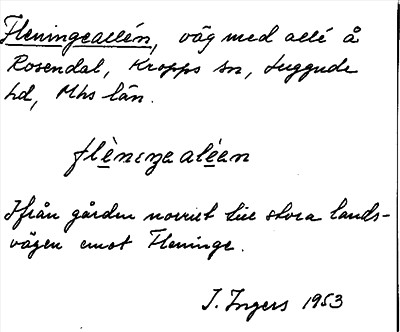 Fleningeallén, väg med allé å
Rosendal, Kropps sn, Luggude
hd, Mhs län.
flèniŋealéen
Ifrån gården norrut till stora lands-
vägen emot Fleninge.
I. Ingers 1953